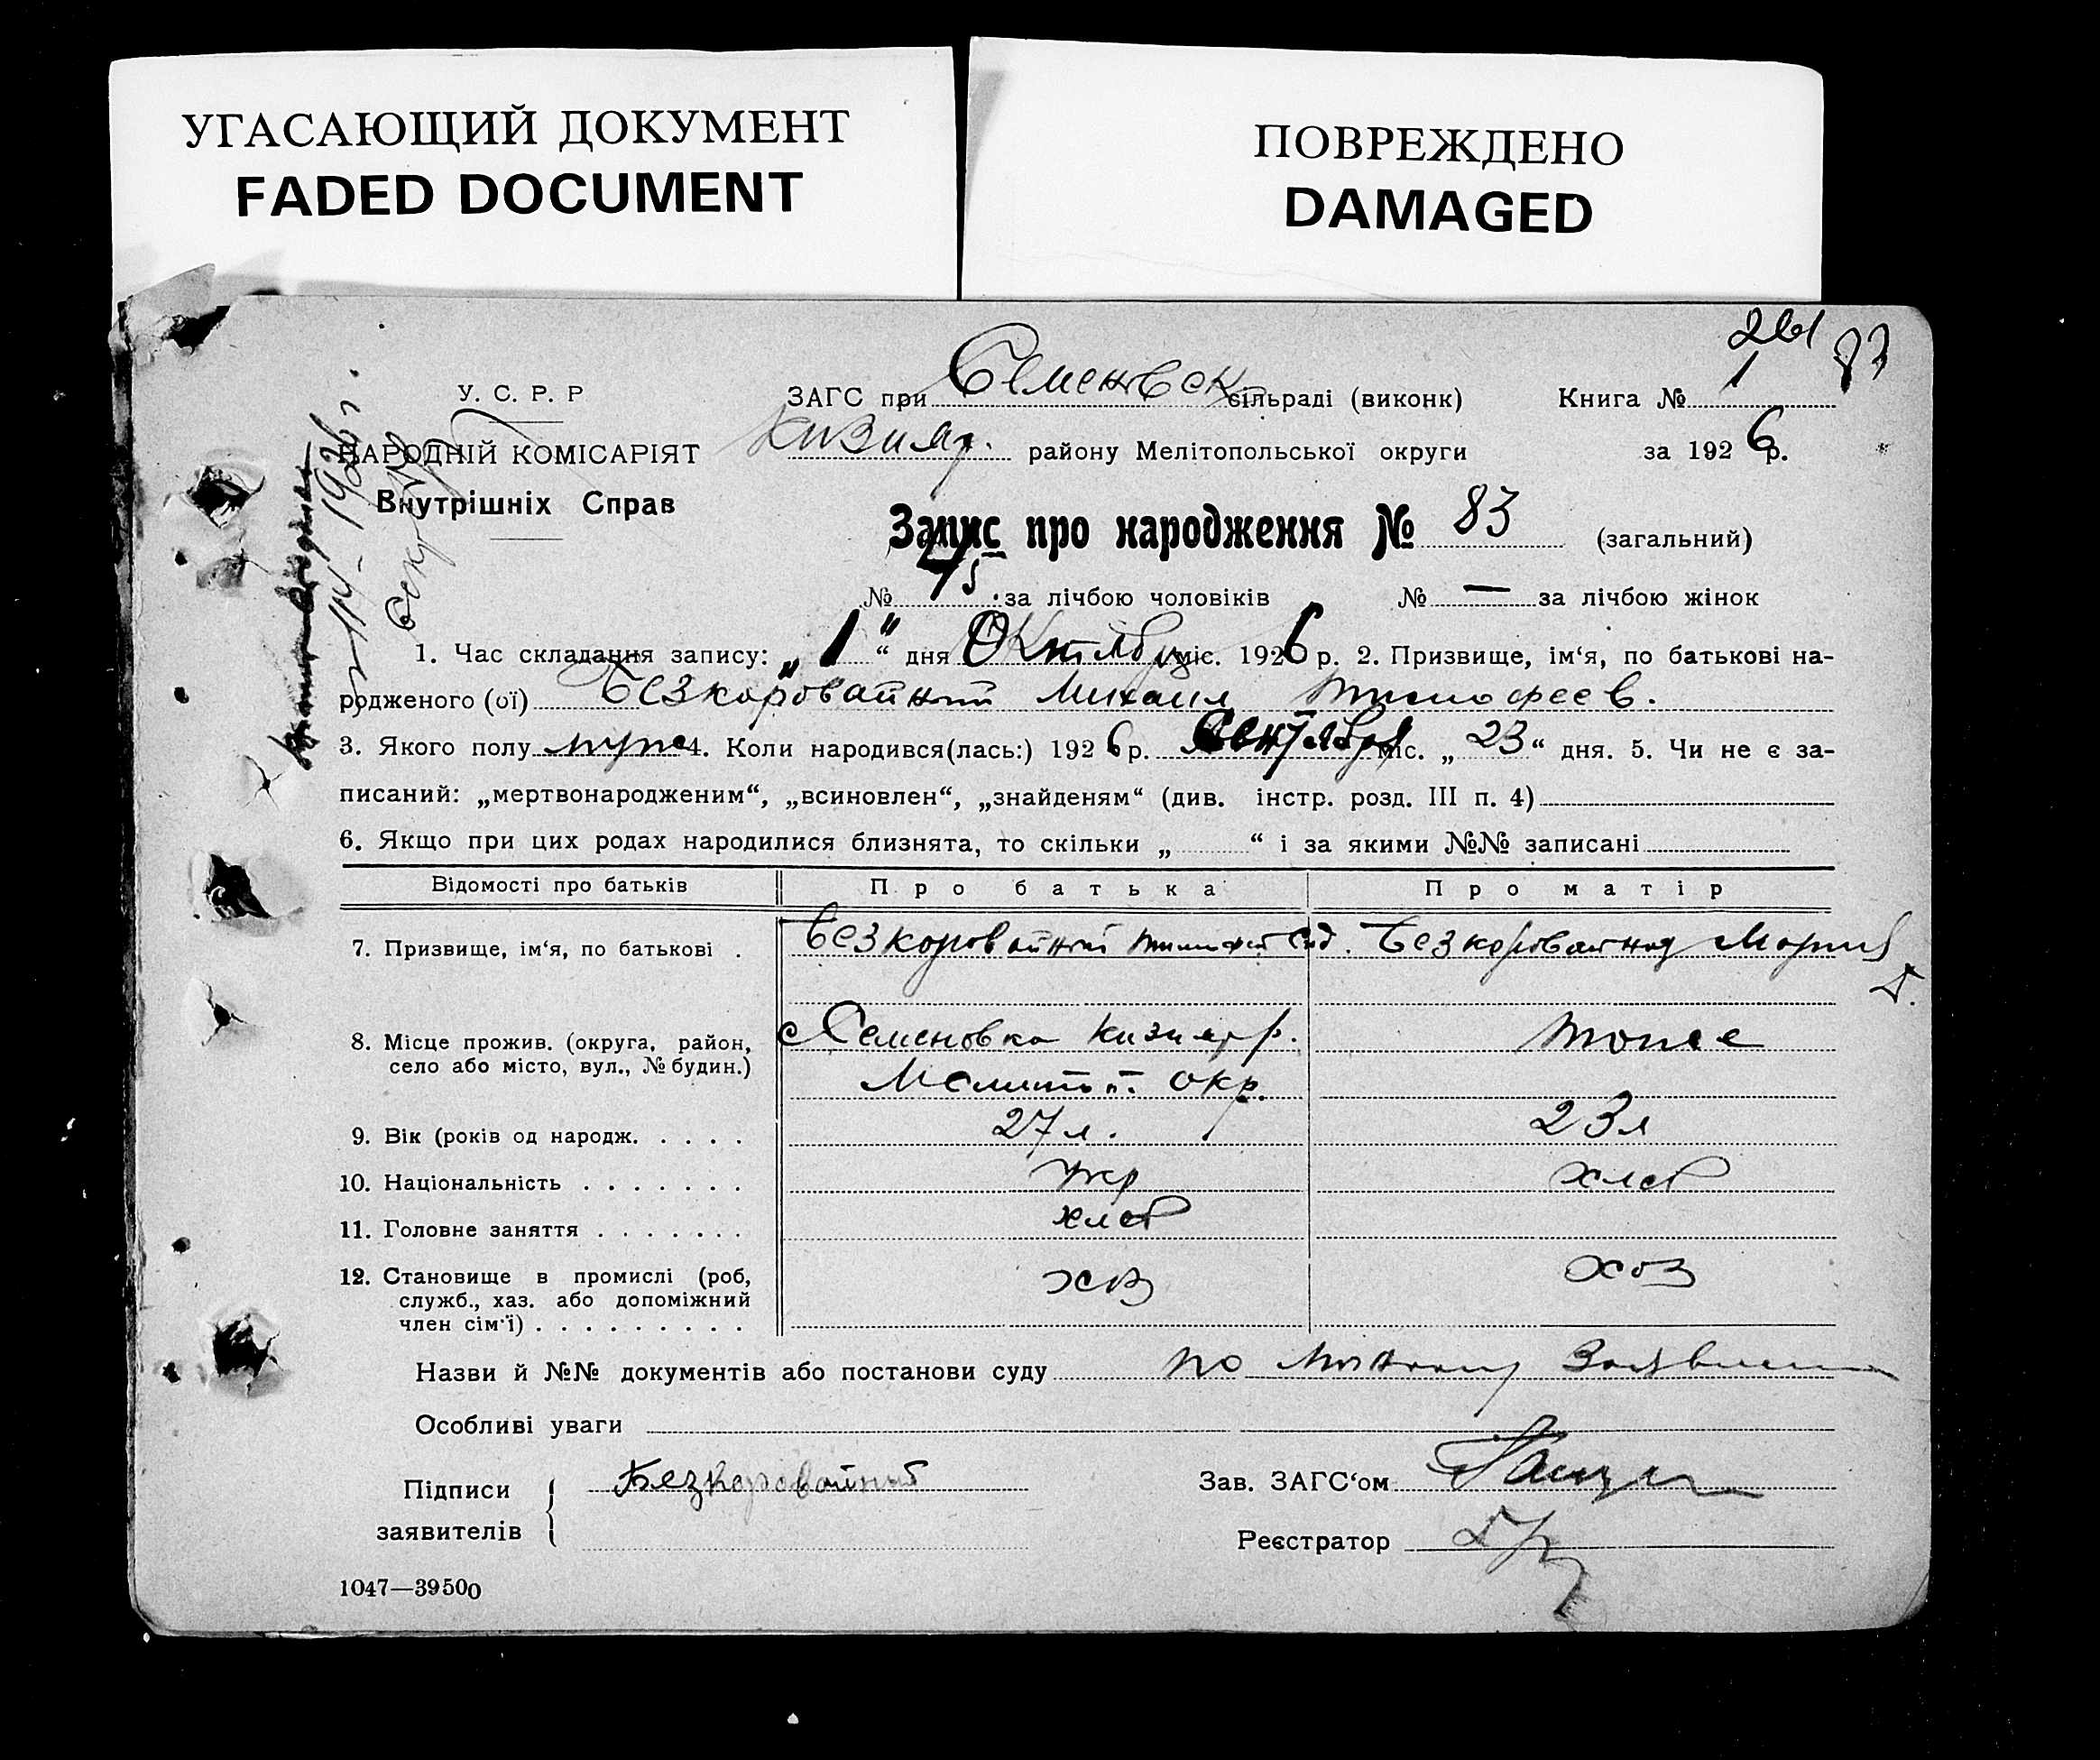 УГАСАЮЩИЙ ДОКУМЕНТ
FADED DOCUMENT
ПОВРЕЖДЕНО
DAMAGED
261 83
У. С. Р. Р
НАРОДНІЙ КОМІСАРІЯТ
Внутрішніх Справ
114 1926 г.
ЗАГС при Семеновск сільраді (виконк) Книга № 1
Кизияр. району Мелітопольської округи за 1926 р.
Запис про народження № 83 (загальний)
№ 45 за лічбою чоловіків № — за лічбою жінок
1. Час складання запису: „1“ дня Октября міс. 1926 р. 2. Призвище, ім‘я, по батькові на-
родженого (ої) Безкоровайный Михаил Тимофеев.
3. Якого полу муж 4. Коли народився(лась:) 1926 р. Сентября міс. „23“ дня. 5. Чи не є за-
писаний: „мертвонародженим“, „всиновлен“, „знайденям“ (див. інстр. розд. III п. 4)
6. Якщо при цих родах народилися близнята, то скільки „ “ і за якими №№ записані
Відомості про батьків Про батька Про матір
7. Призвище, ім‘я, по батькові . Безкоровайный Тимофей Сид. Безкоровайная Мария
8. Місце прожив. (округа, район, с Семеновка Кизияр р. тоже
село або місто, вул., № будин.) Мелитоп. окр.
9. Вік (років од народж. . . . . 27 л. 23 л
10. Національність . . . . . . . укр хлеб
11. Головне заняття . . . . . . . хлеб
12. Становище в промислі (роб, хоз хоз
служб., хаз. або допоміжний
член сім‘ї) . . . . . . . . .
Назви й №№ документів або постанови суду по личному Заявлению
Особливі уваги
Підписи Безкоровайный Зав. ЗАГС‘ом
заявителів Реєстратор
1047—39500